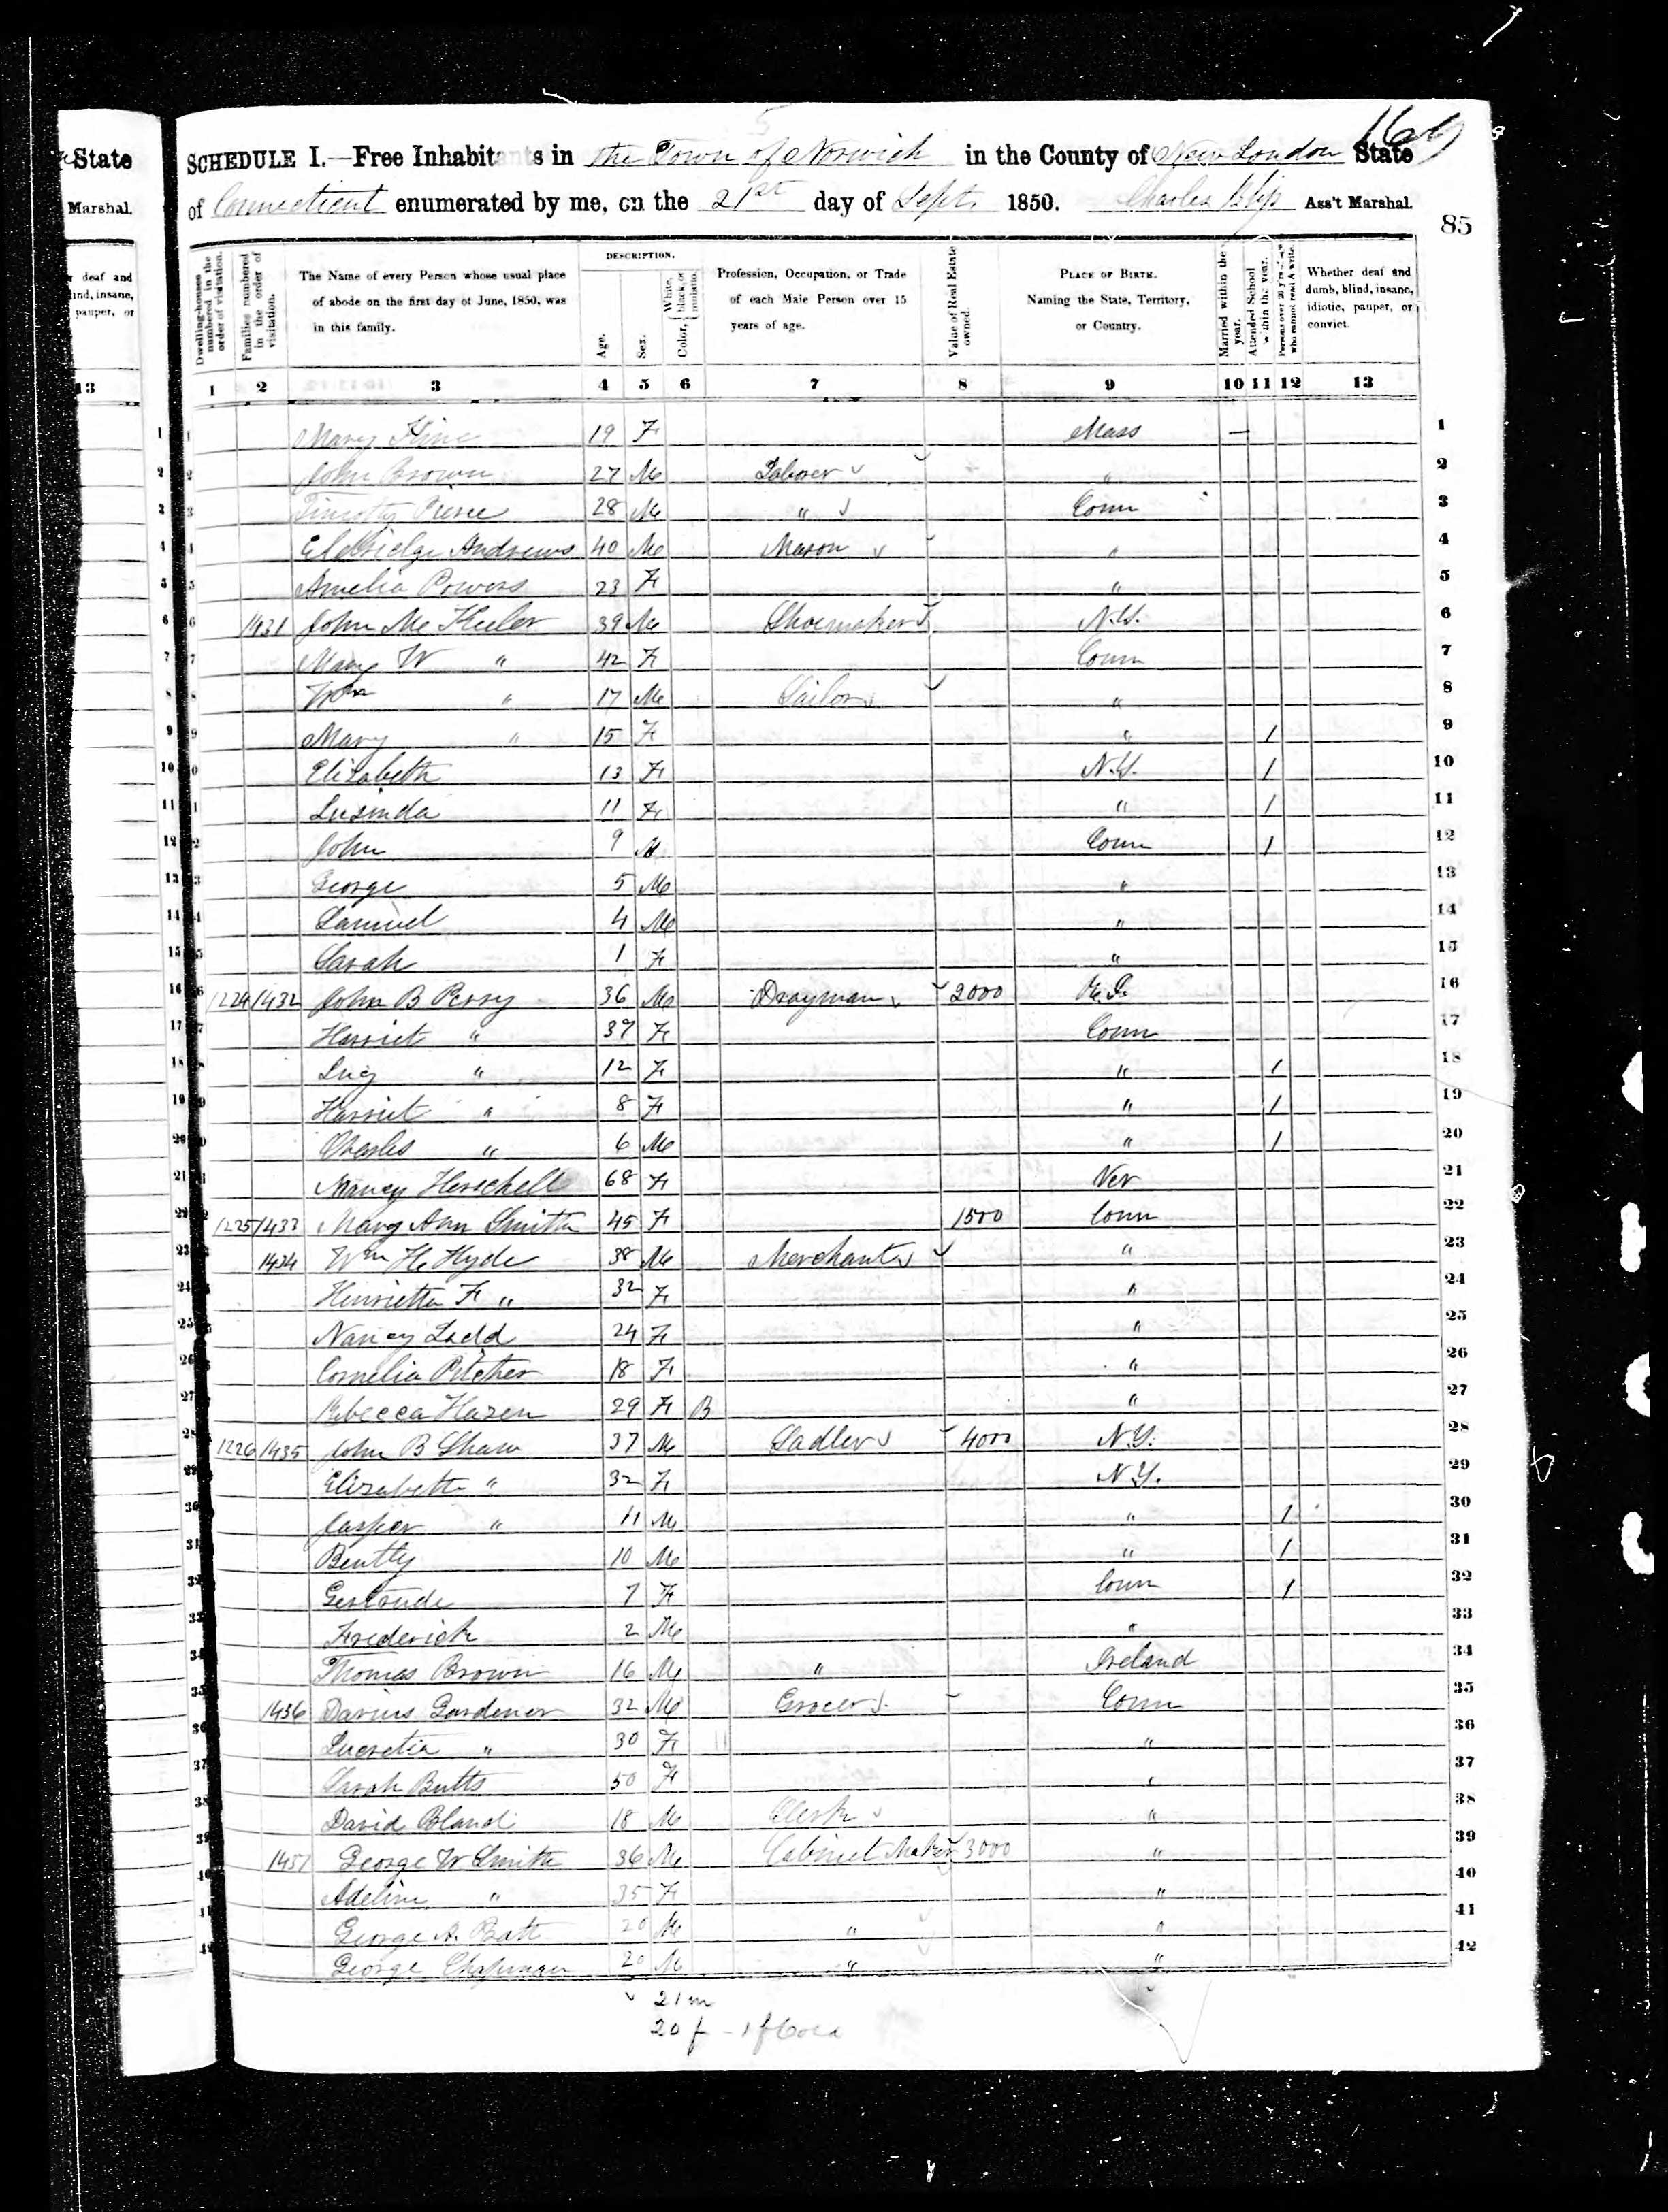 State
Marshal.
deaf and
lind, insane,
pauper, or
13
169
SCHEDULE I.—Free Inhabitants in the Town of Norwich in the County of New London State
of Connecticut enumerated by me, on the 21st day of Sept. 1850. Charles Ass't Marshal.
85
Dwelling-houses numbered in the order of visitation.
Families numbered in the order of visitation.
The Name of every Person whose usual place of abode on the first day of June, 1850, was in this family.
DESCRIPTION.
Age.
Sex.
Color, White, black, or mulatto.
Profession, Occupation, or Trade of each Male Person over 15 years of age.
Value of Real Estate owned.
PLACE OF BIRTH. Naming the State, Territory, or Country.
Married within the year.
Attended School within the year.
Persons over 20 y'rs of age who cannot read & write.
Whether deaf and dumb, blind, insane, idiotic, pauper, or convict.
1 2 3 4 5 6 7 8 9 10 11 12 13
1 Mary 19 F Mass — 1
2 John Brown 27 M Laborer " 2
3 Timothy Pierce 28 M " Conn 3
4 Eldridge Andrews 40 M Mason " 4
5 Amelia Powers 23 F " 5
6 1431 John Mc Keeler 39 M Shoemaker N.Y. 6
7 Mary W " 42 F Conn 7
8 Wm " 17 M Sailor " 8
9 Mary " 15 F " 1 9
10 Elizabeth 13 F N.Y. 1 10
11 Lusinda 11 F " 1 11
12 John 9 M Conn 1 12
13 George 5 M " 13
14 Samuel 4 M " 14
15 Sarah 1 F " 15
16 1224 1432 John B Perry 36 M Drayman 2000 R.I. 16
17 Harriet " 37 F Conn 17
18 Lucy " 12 F " 1 18
19 Harriet " 8 F " 1 19
20 Charles " 6 M " 1 20
21 Nancy Herschell 68 F Ver 21
22 1225 1433 Mary Ann Smith 45 F 1500 Conn 22
23 1434 Wm H. Hyde 38 M Merchant " 23
24 Henrietta F " 32 F " 24
25 Nancy Ladd 24 F " 25
26 Cornelia Pitcher 18 F " 26
27 Rebecca Hazen 29 F B " 27
28 1226 1435 John B Shaw 37 M Sadler 4000 N.Y. 28
29 Elizabeth " 32 F N.Y. 29
30 Casper " 11 M " 1 30
31 Bently 10 M " 1 31
32 Gertrude 7 F Conn 1 32
33 Frederick 2 M " 33
34 Thomas Brown 16 M " Ireland 34
35 1436 Darius Gardener 32 M Grocer Conn 35
36 Lucretia " 30 F " 36
37 Sarah Butts 50 F " 37
38 David 18 M Clerk " 38
39 1437 George W Smith 36 M Cabinet Maker 3000 " 39
40 Adeline " 35 F " 40
41 George A. 20 M " " 41
42 George Chapman 20 M " " 42
21 m
20 f - 1 f Cold